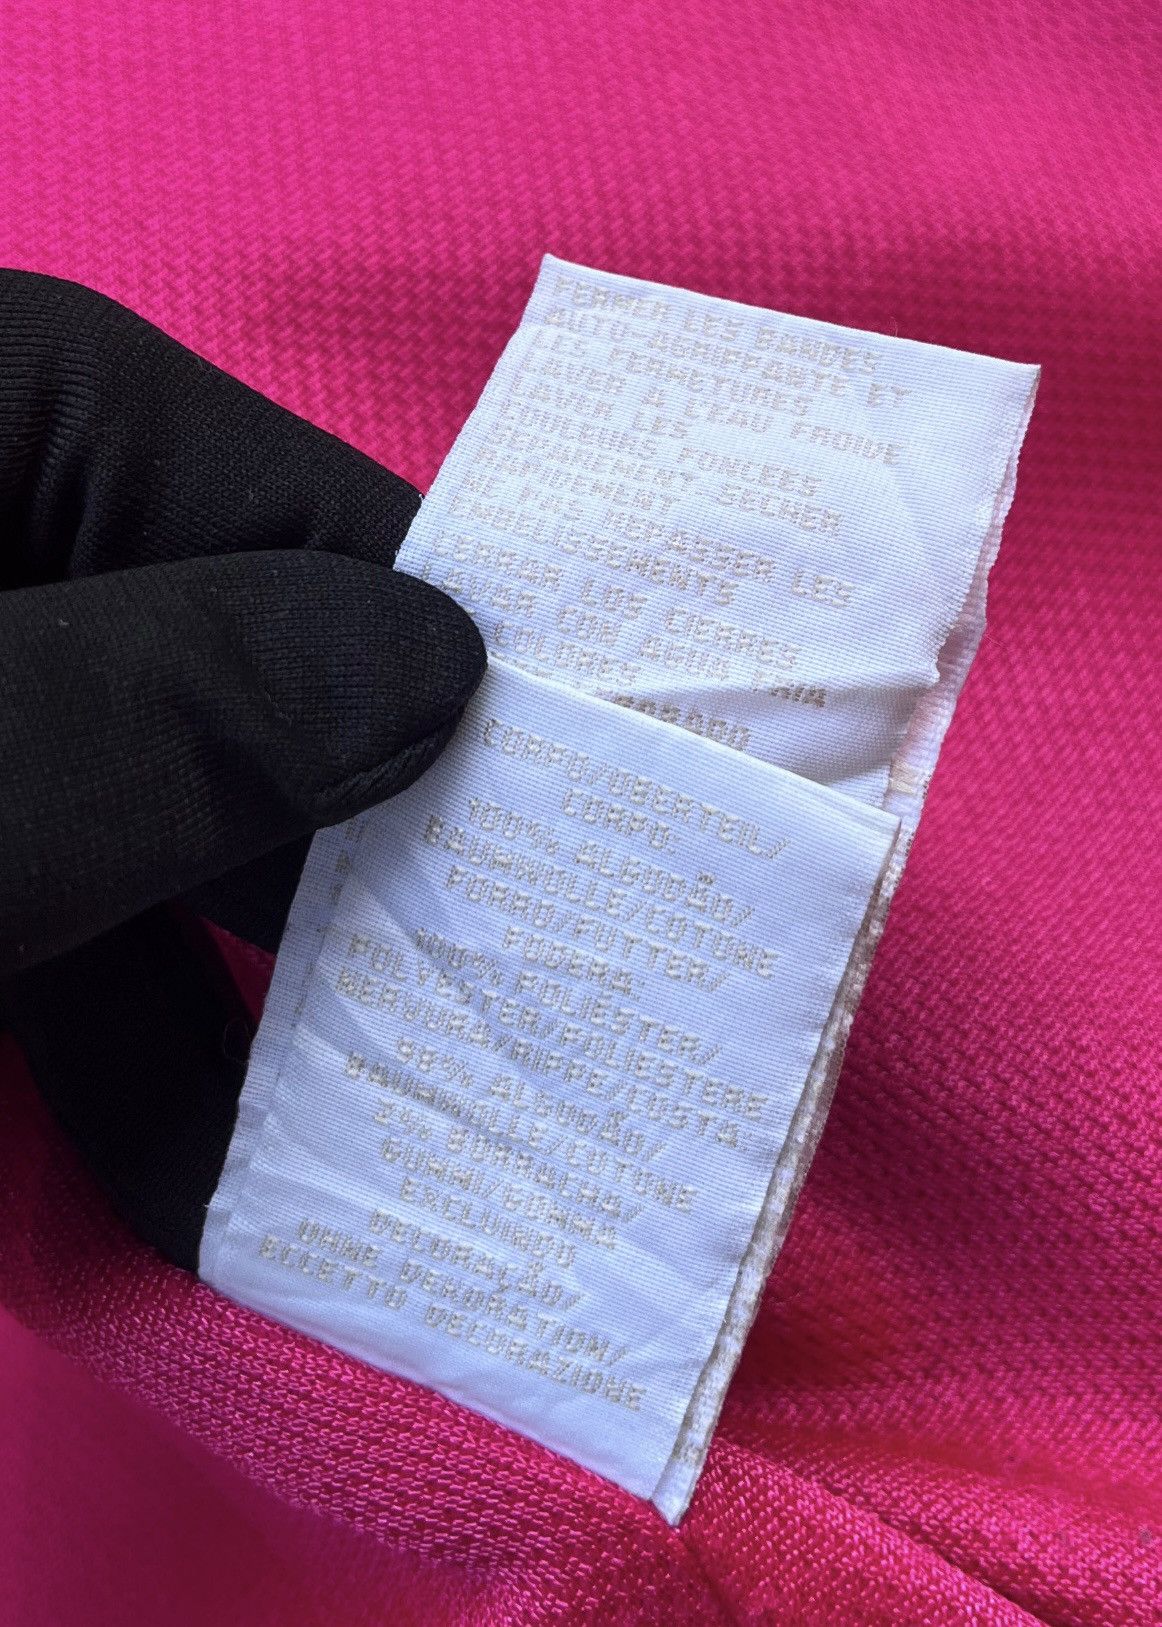 FERMER LES BANDES
AUTO-AGRIPPANTE ET
LES FERMETURES
LAVER A L'EAU FROIDE
LAVER LES
COULEURS FONCEES
SEPAREMENT SECHER
RAPIDEMENT
NE PAS REPASSER LES
EMBELISSEMENTS
CERRAR LOS CIERRES
LAVAR CON AGUA FRIA
COLORES
CORPO/OBERTEIL/
CORPO:
100% ALGODÃO/
BAUMWOLLE/COTONE
FORRO/FUTTER/
FODERA:
100% POLIÉSTER/
POLYESTER/POLIESTERE
NERVURA/RIPPE/COSTA:
98% ALGODÃO/
BAUMWOLLE/COTONE
2% BORRACHA/
GUMMI/GOMMA
EXCLUINDO
DECORAÇÃO/
OHNE DEKORATION/
ECCETTO DECORAZIONE